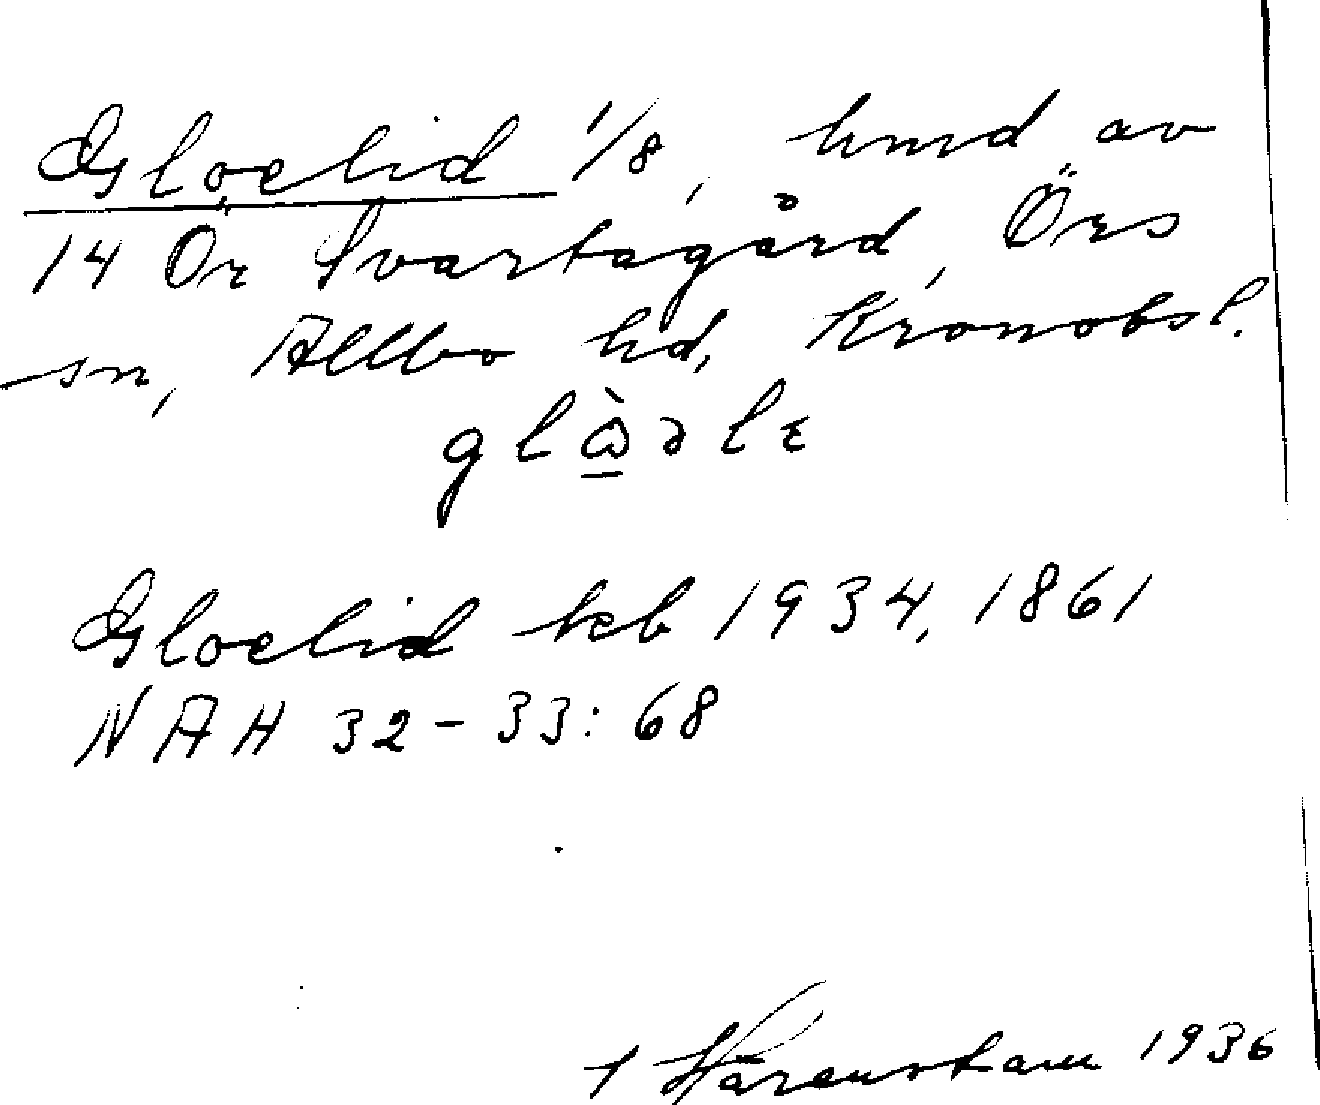 Gloelid 1/8, hmd av
14 Ör Svartagård, Örs
sn, Allbo hd, Kronobsl.
glὼəlε
Gloelid kb 1934, 1861
NAH 32-33: 68
1936